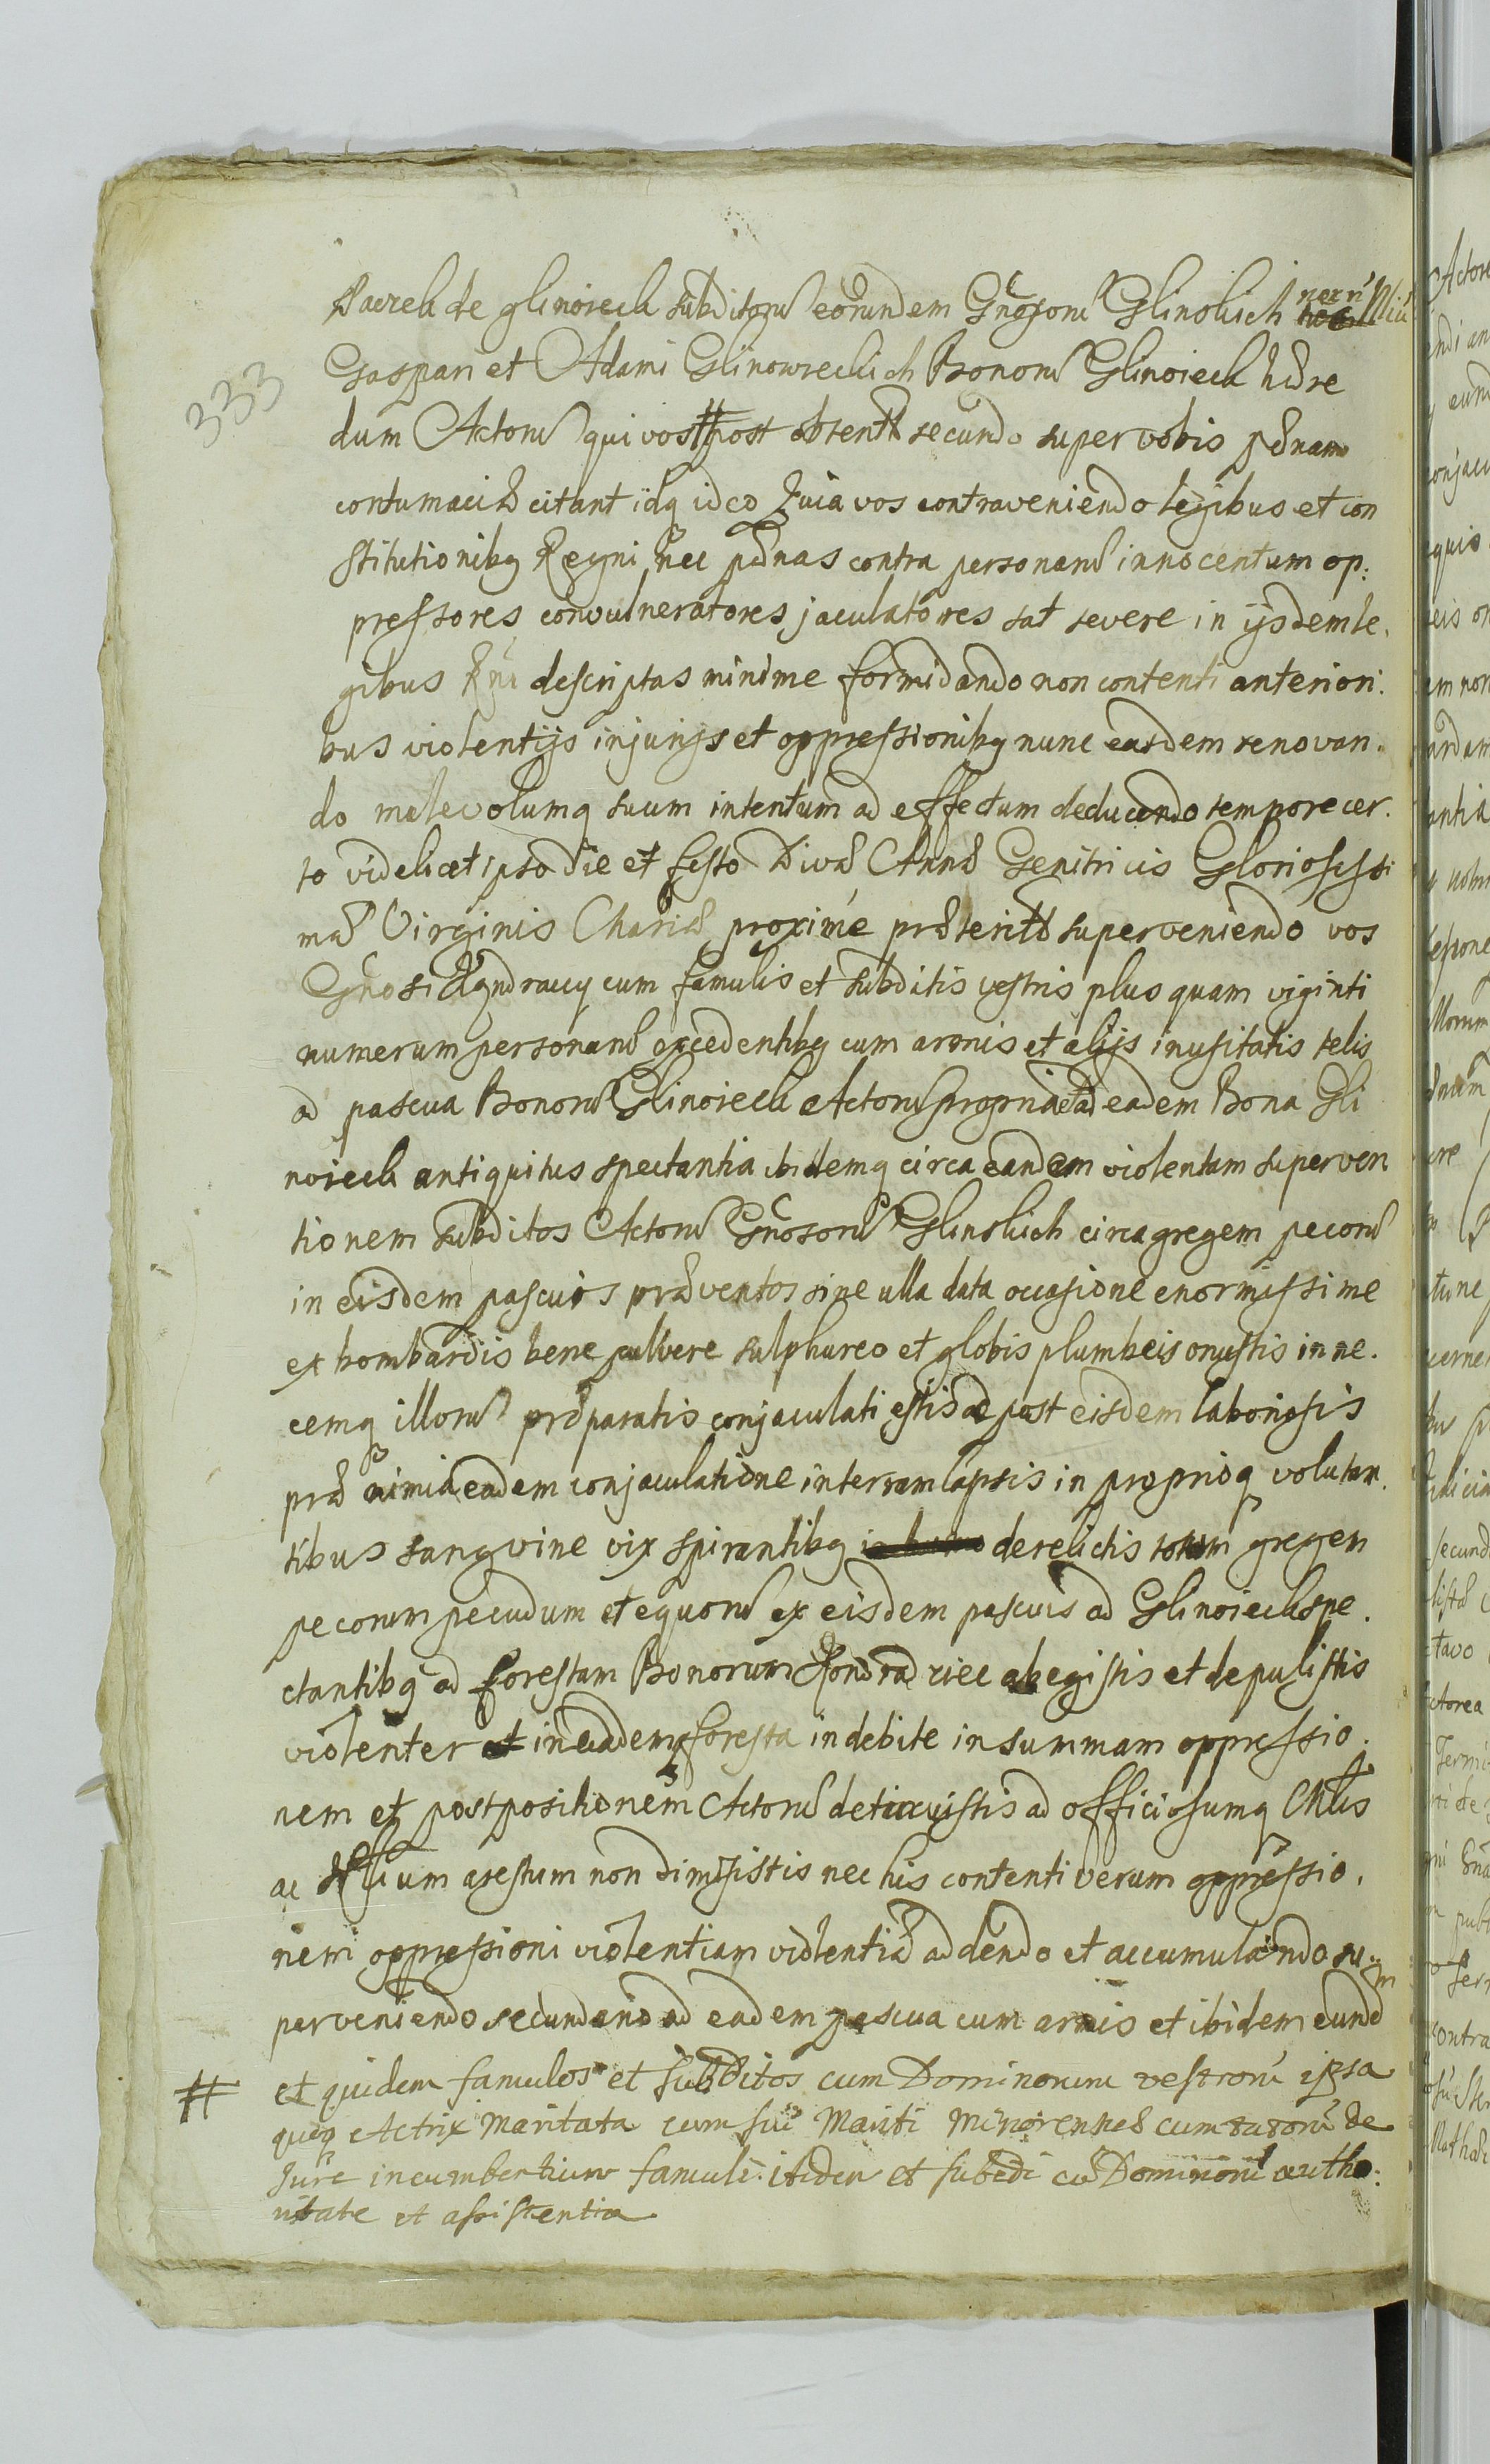 Pawela de glinoieck subditorū eorundem Gn̄osorū Glinskich nec n̄
Gaspari et Adami Glinowieckich Bonorū Glinoieck hære
333
dum Actorū qui vos # post obtentā secundo super vobis pænam
contumaciæ citant idq ideo Quia vos contraveniendo legibus et con
stitutionibq Regni nec pænas contra personarū innocentum op:
pressores convulneratores jaculatores sat severe in ijsdem le.
gibus Rn̄i descriptas minime formidando non contenti anteriori.
bus violentijs injurijs et oppressionibq nunc easdem renovan.
do malevolumq suum intentum ad effectum deducendo tempore cer.
to videlicet ipso die et festo Divæ Annæ Genitricis Gloriosissi
mæ Virginis Mariæ proxime præteritæ superveniendo vos
Gn̄osi cum famulis et subditis vestris plus quam viginti
numerum personarū excedentibq cum armis et alijs inusitatis telis
ad pascua Bonorū Glinoieck Actorū propria et ad eadem Bona Gli
noieck antiquitus spectantia ibidemq circa eandem violentam superven
tionem subditos Actorū Gn̄osorū Glinskich circa gregem pecorū
in eisdem pascuis præventos sine ulla data occasione enormissime
ex bombardis bene pulvere sulphureo et globis plumbeis onustis in ne.
cemq illorū præparatis conjaculati estis ac post eisdem laboriosis
præ nimia eadem conjaculatione in terram lapsis in proprioq volutan.
tibus sangvine vix spirantibq derelictis totum gregem
pecorum pecudum et equorū ex eisdem pascuis ad Glinoieck spe.
ctantibq ad forestam Bonorum abegistis et depulistis
violenter et in eadem foresta indebite in summam oppressio.
nem et postpositionem Actorū detinuistis ad officiosumq
ac arestum non dimisistis nec his contenti verum oppressio.
nem oppressioni violentiam violentiæ addendo et accumulando su.
perveniendo secundario ad eadem pascua cum armis et ibidem eund
# et quidem famulos et subditos cum Dominorum vestrorū ipsa
quoq Actrix maritata cum sui Mariti Minorennes cum tutorū de
Jure incumbentium famuli itidem et subditi cū Dominorū autho:
ritate et assistentia